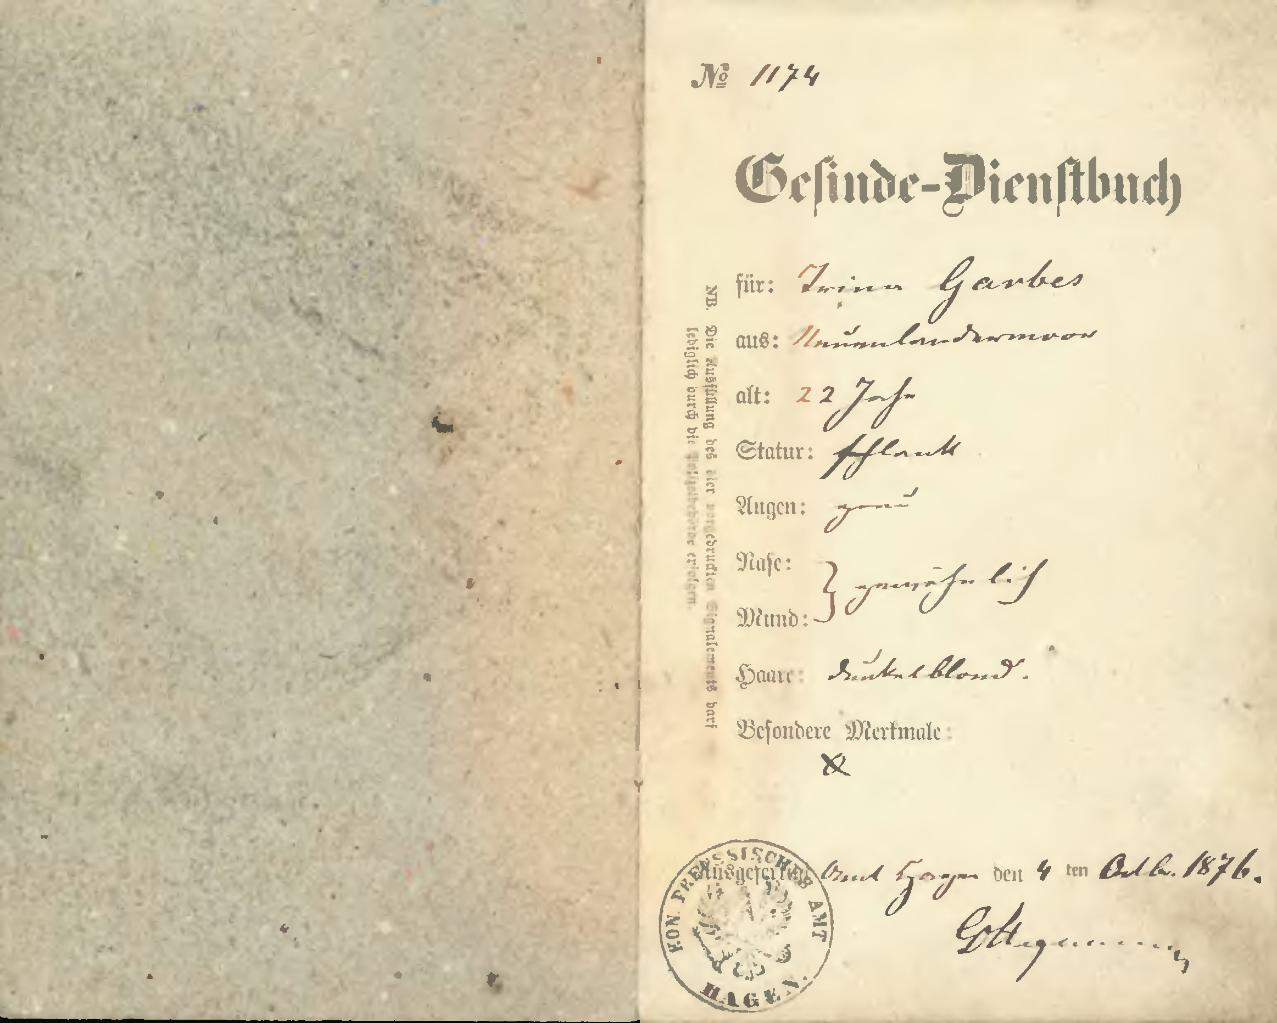 № 1174
Gesinde-Dienstbuch
für: Trina Garbes
aus: Neuenlandermoor
alt: 22 Jahr
Statur: schlank
Augen: grau
Nase:
Mund: } gewöhnlich
Haare: dunkelblond.
Besondere Merkmale:
Ausgefertigt Amt Hagen den 4 ten Octbr. 1876.
KÖN. PREUSSISCHES AMT
HAGEN.
NB. Die Ausfüllung des hier vorgedruckten Signalements darf
lediglich durch die Polizeibehörde erfolgen.